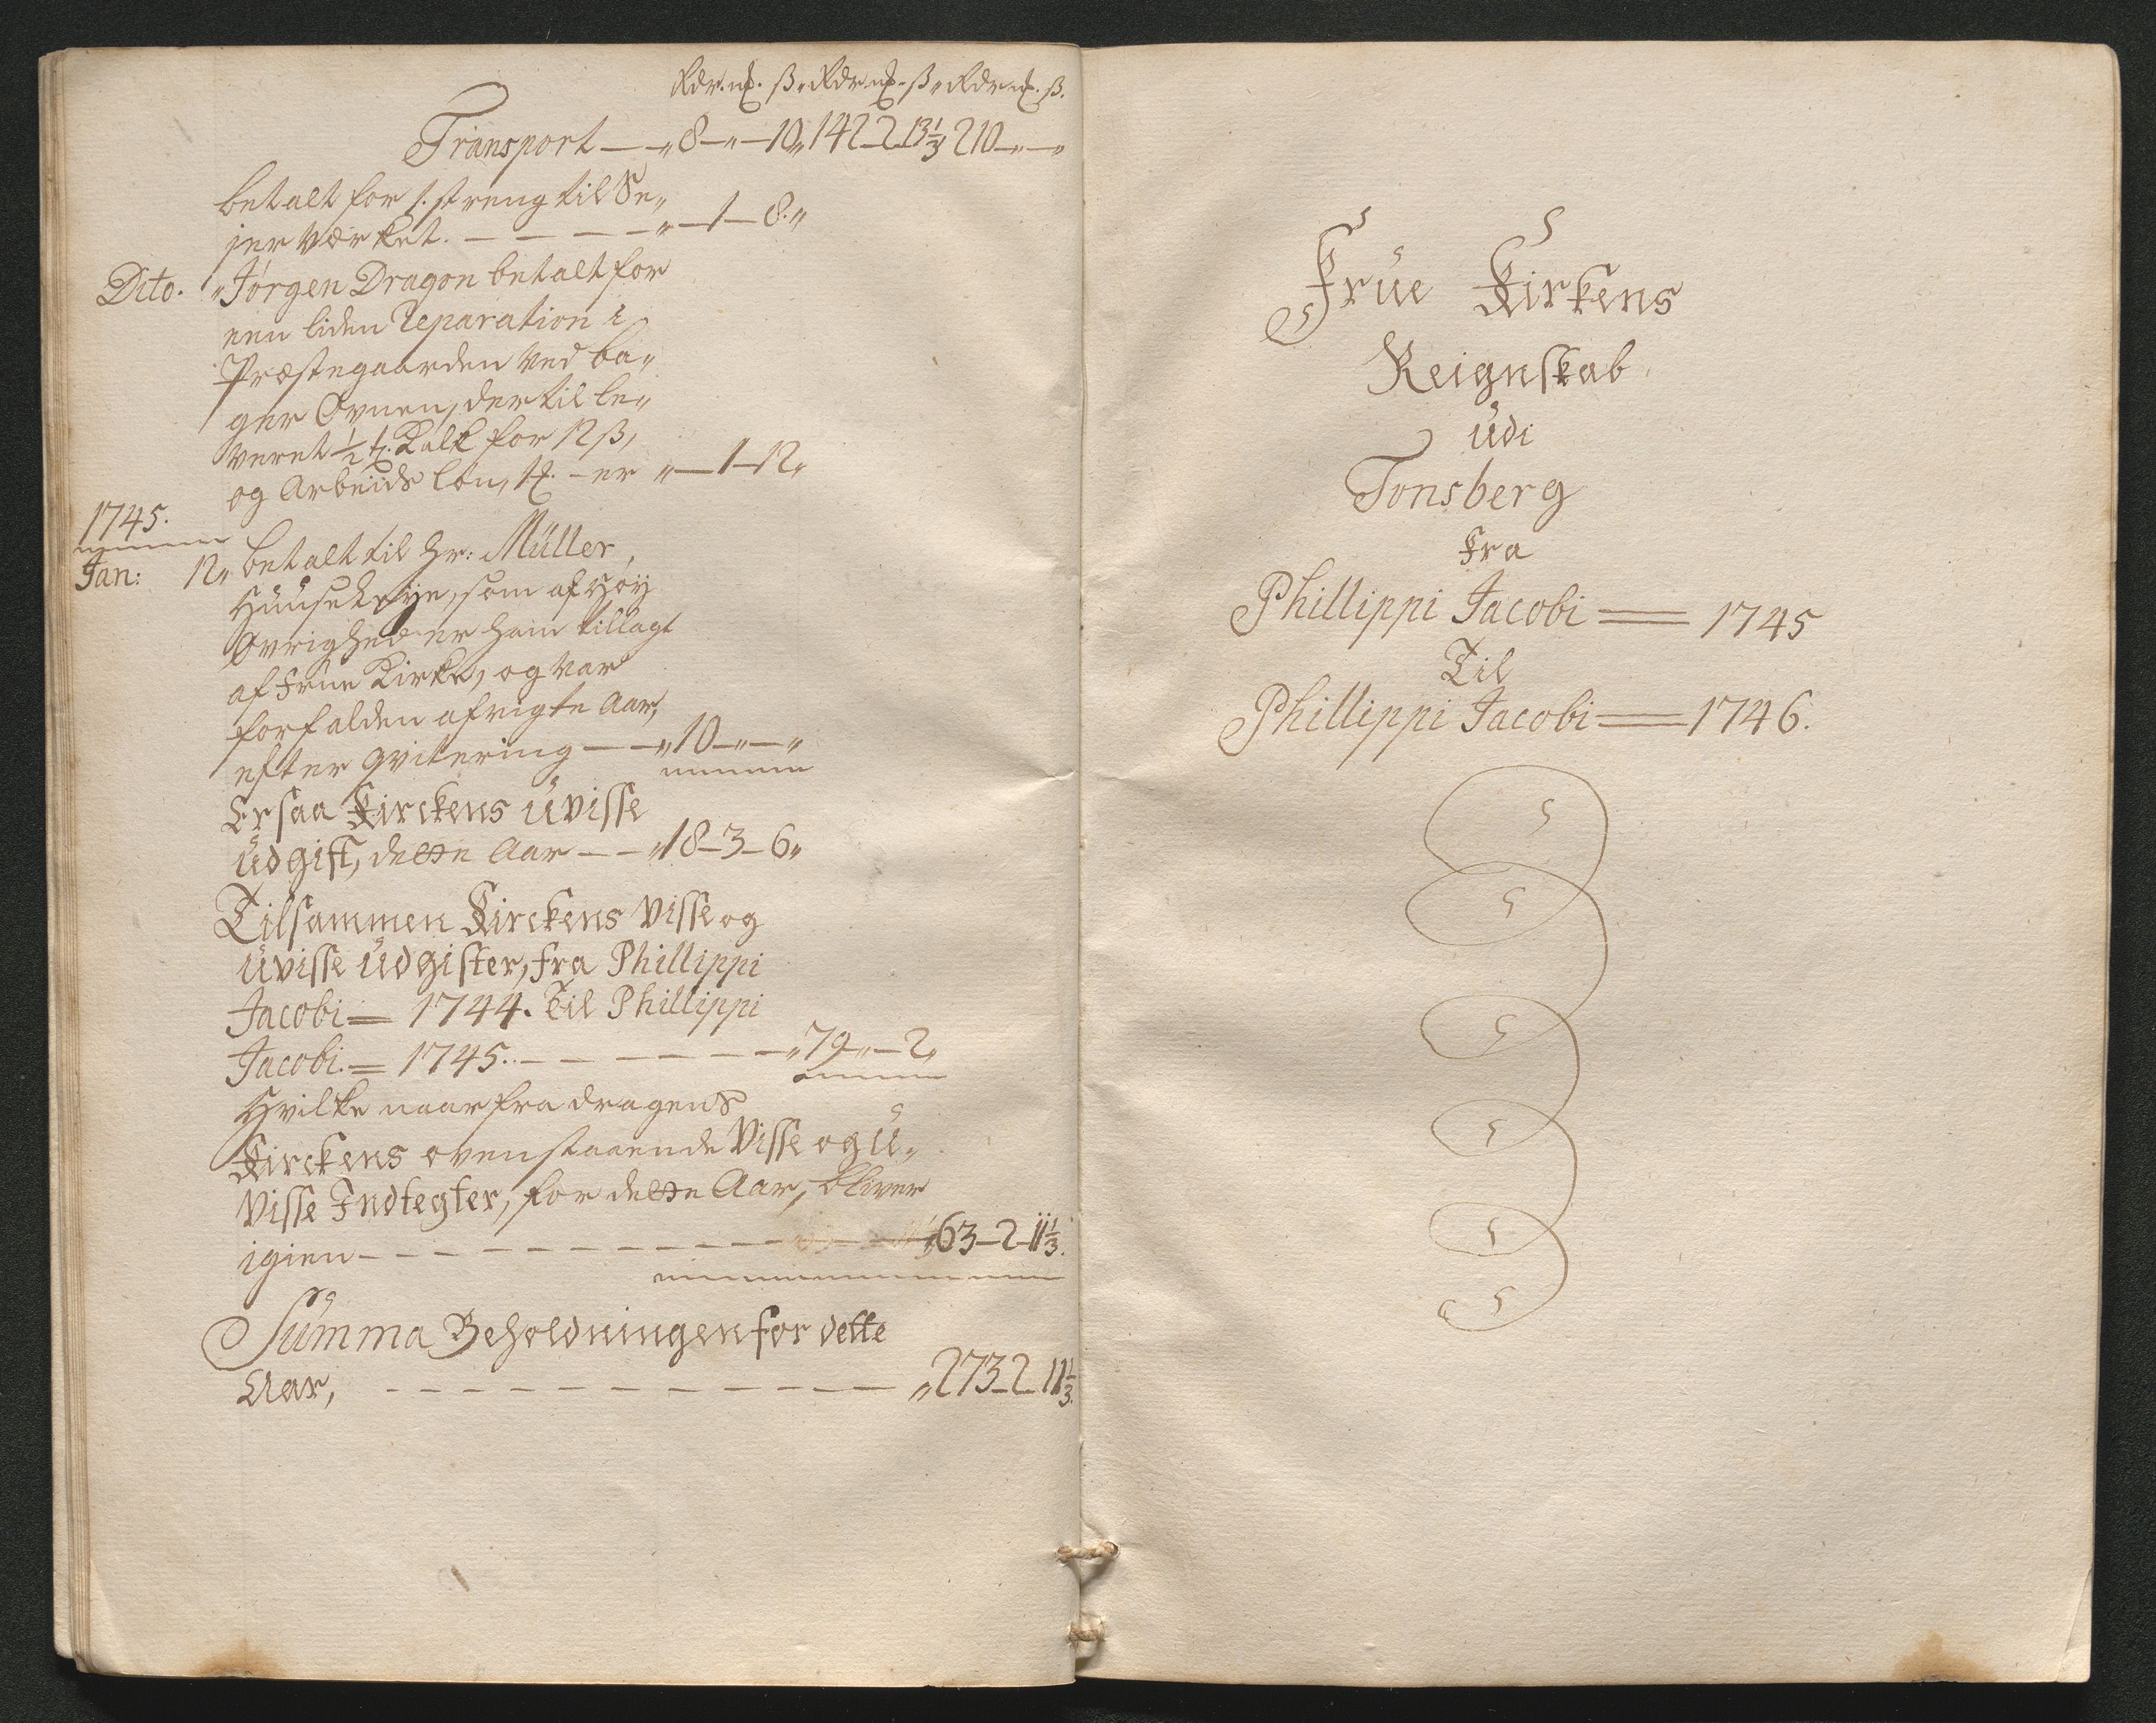 Rdr. mk. ß. Rdr mk. ß. Rdr mk. ß.
Transport — „ 8 — „ — 10 „ 142 — 2 — 13 1/3 210 — „ — „
betalt for 1. streng til Se„
jer Værket. — — — — „ — 1 — 8. „
Dito. „ Jørgen Dragon betalt for
een liden Reparation i
Præstegaarden ved ba„
ger Ovnen, der til le„
veret 1/2 t. Kalk for 12 ß,
og Arbeids løn, 1 mk. – er „ — 1 — 12 „
1745.
Jan: 12 „ betalt til Hr: Müller,
Huuseleye, som af Høy
Øvrighed er ham tillagt
af Frue Kirke, og var
forfalden afvigte Aar,
efter qvitering — — „ 10 — „ — „
Er saa Kirckens uvisse
udgift, dette Aar — — „ 18 – 3 – 6 „
Tilsammen Kirckens visse og
uvisse udgifter, fra Phillippi
Jacobi = 1744. Til Phillippi
Jacobi. = 1745. — — — — — — „ 79 „ — 2 „
Hvilke naar fradragens
Kirckens ovenstaaende Visse og u„
Visse Indtegter, for dette Aar, bliver
igien — — — — — — — — — — „ 63 – 2 – 11 1/3.
Summa Beholdningen for dette
Aar, — — — — — — — — — — „ 273 – 2 – 11 1/3.
Frue Kirkens
Reignskab
udi
Tonsberg
Fra
Phillippi Jacobi = 1745
Til
Phillippi Jacobi = 1746.